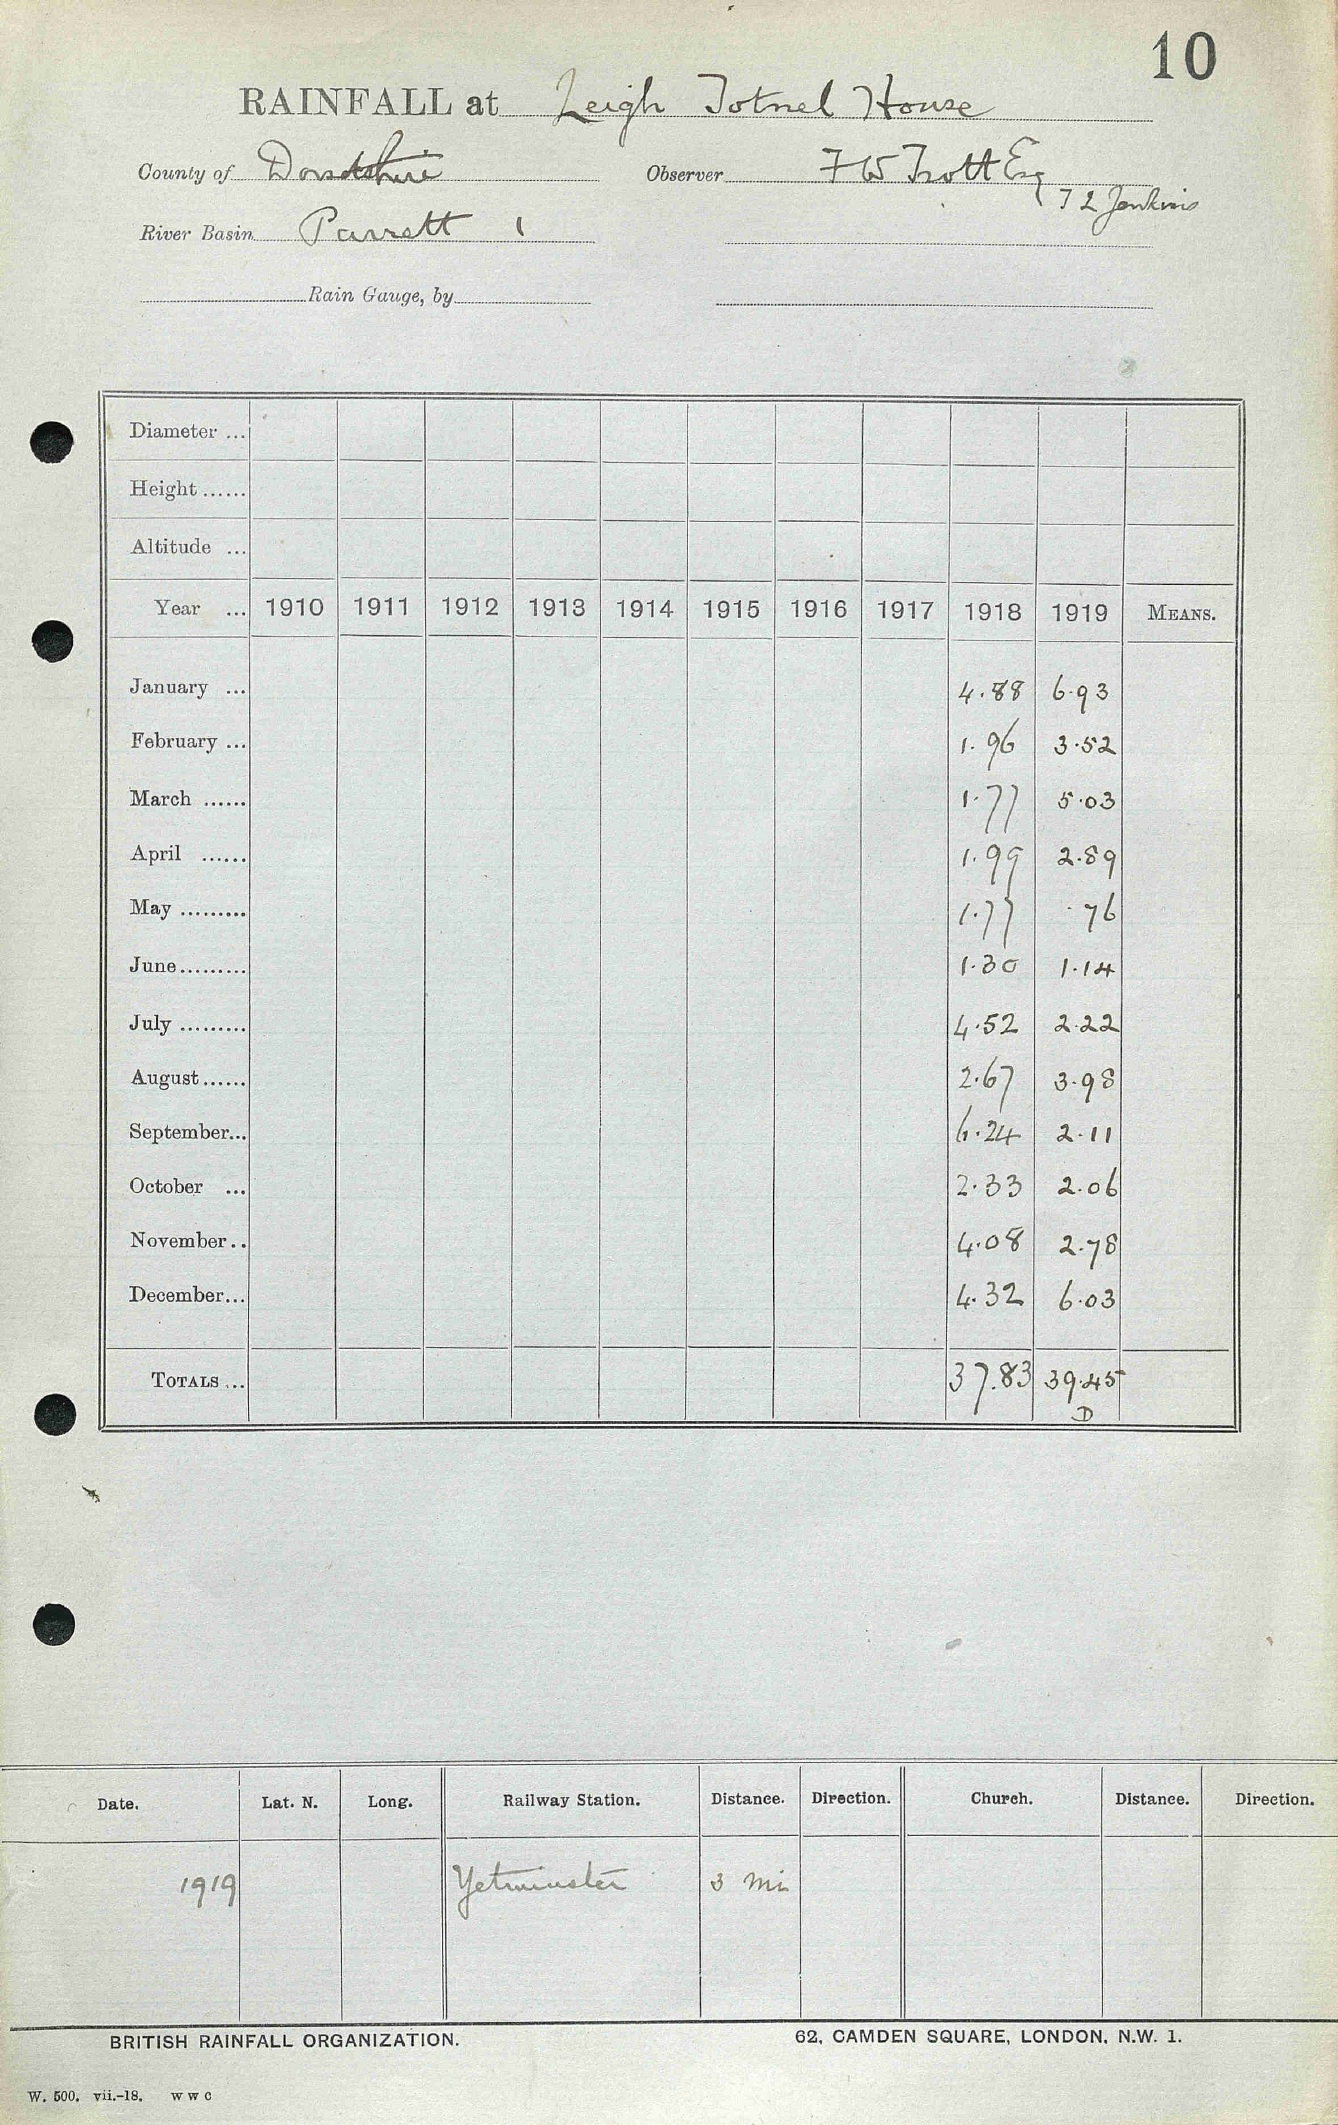 10
RAINFALL at Leigh Totnel House
County of Dorsetshire Observer F W Trott Esq
T L Jenkins
River Basin Parrett 1
Rain Gauge, by
Diameter ...
Height ......
Altitude ...
Year ... 1910 1911 1912 1913 1914 1915 1916 1917 1918 1919 MEANS.
January ... 4.88 6.93
February ... 1.96 3.52
March ...... 1.77 5.03
April ...... 1.99 2.89
May ......... 1.77 .76
June ......... 1.30 1.14
July ......... 4.52 2.22
August ...... 2.67 3.98
September... 6.24 2.11
October ... 2.33 2.06
November .. 4.08 2.78
December... 4.32 6.03
TOTALS ... 37.83 39.45
D
Date. Lat. N. Long. Railway Station. Distance. Direction. Church. Distance. Direction.
1919 Yetminster 3 mi
BRITISH RAINFALL ORGANIZATION. 62, CAMDEN SQUARE, LONDON, N.W. 1.
W. 500. vii.-18. W W C